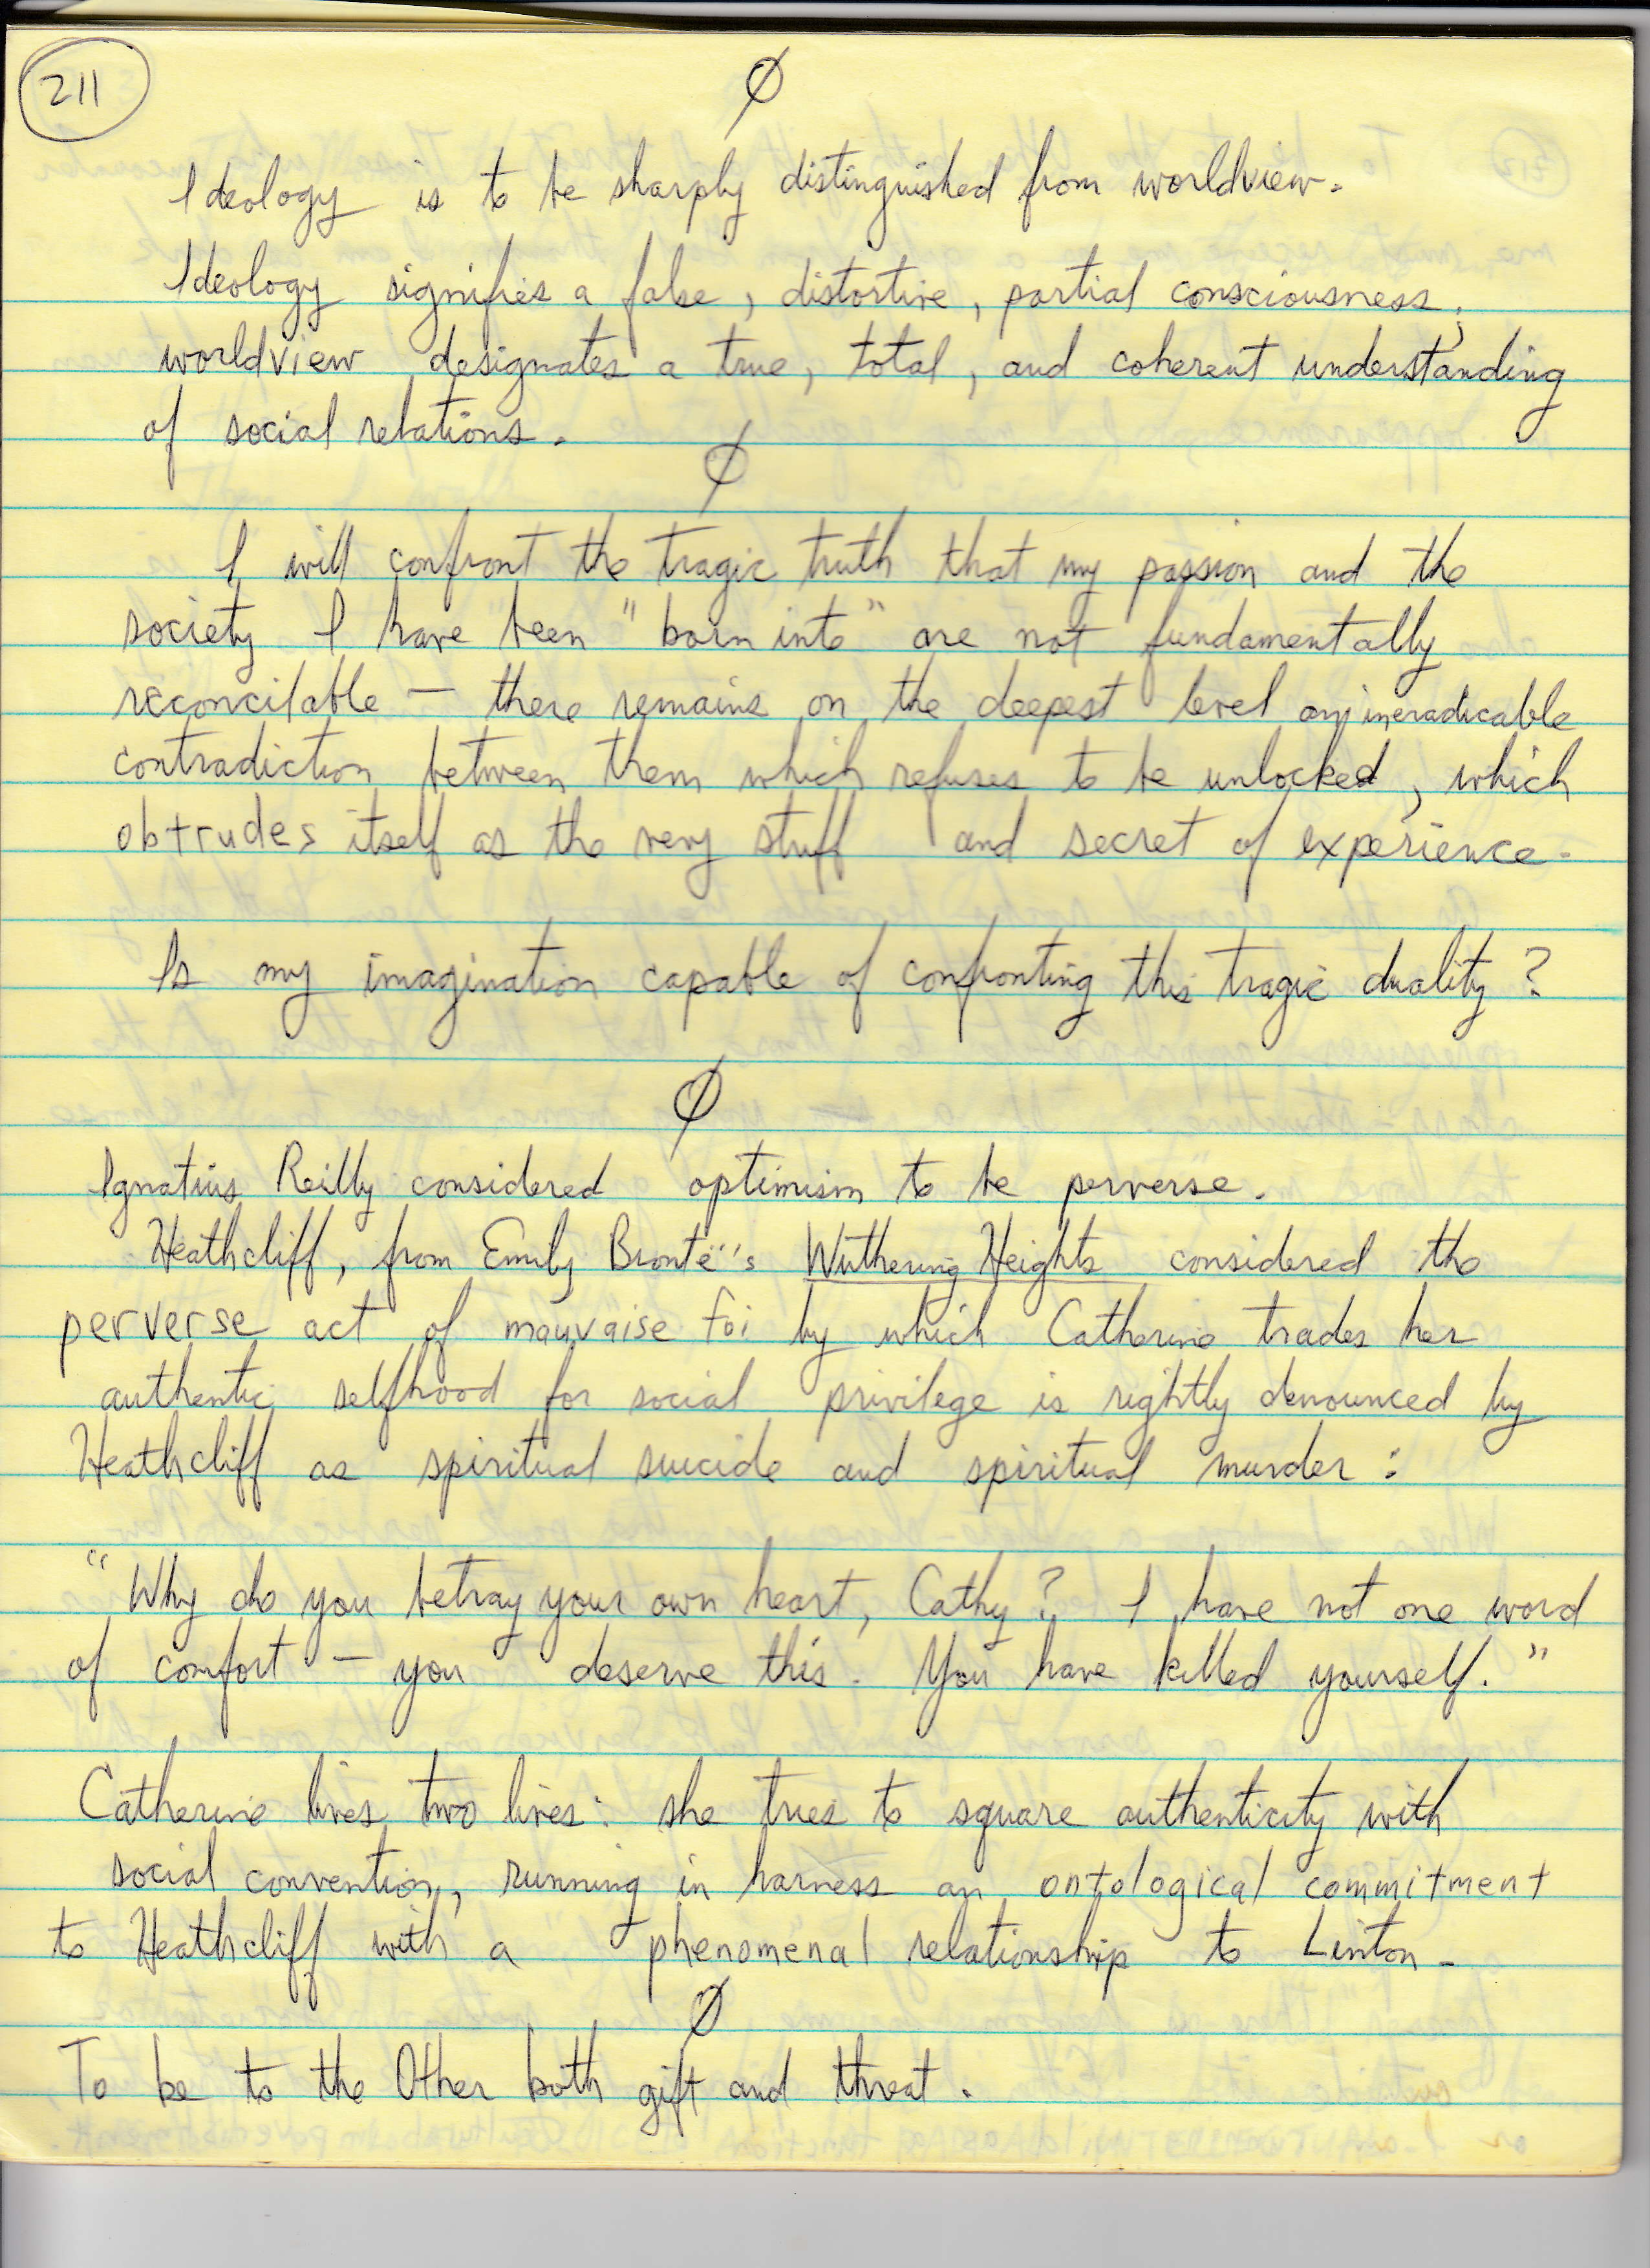 211
Ø
Ideology is to be sharply distinguished from worldview.
Ideology signifies a false, distortive, partial consciousness;
worldview designates a true, total, and coherent understanding
of social relations.
Ø
I will confront the tragic truth that my passion and the
society I have been "born into" are not fundamentally
reconcilable — there remains on the deepest level an ineradicable
contradiction between them which refuses to be unlocked, which
obtrudes itself as the very stuff and secret of experience.
Is my imagination capable of confronting this tragic duality?
Ø
Ignatius Reilly considered optimism to be perverse.
Heathcliff, from Emily Brontë's Wuthering Heights considered the
perverse act of mauvaise foi by which Catherine trades her
authentic selfhood for social privilege is rightly denounced by
Heathcliff as spiritual suicide and spiritual murder:
"Why do you betray your own heart, Cathy? I have not one word
of comfort — you deserve this. You have killed yourself."
Catherine lives two lives: she tries to square authenticity with
social convention, running in harness an ontological commitment
to Heathcliff with a phenomenal relationship to Linton.
Ø
To be to the Other both gift and threat.